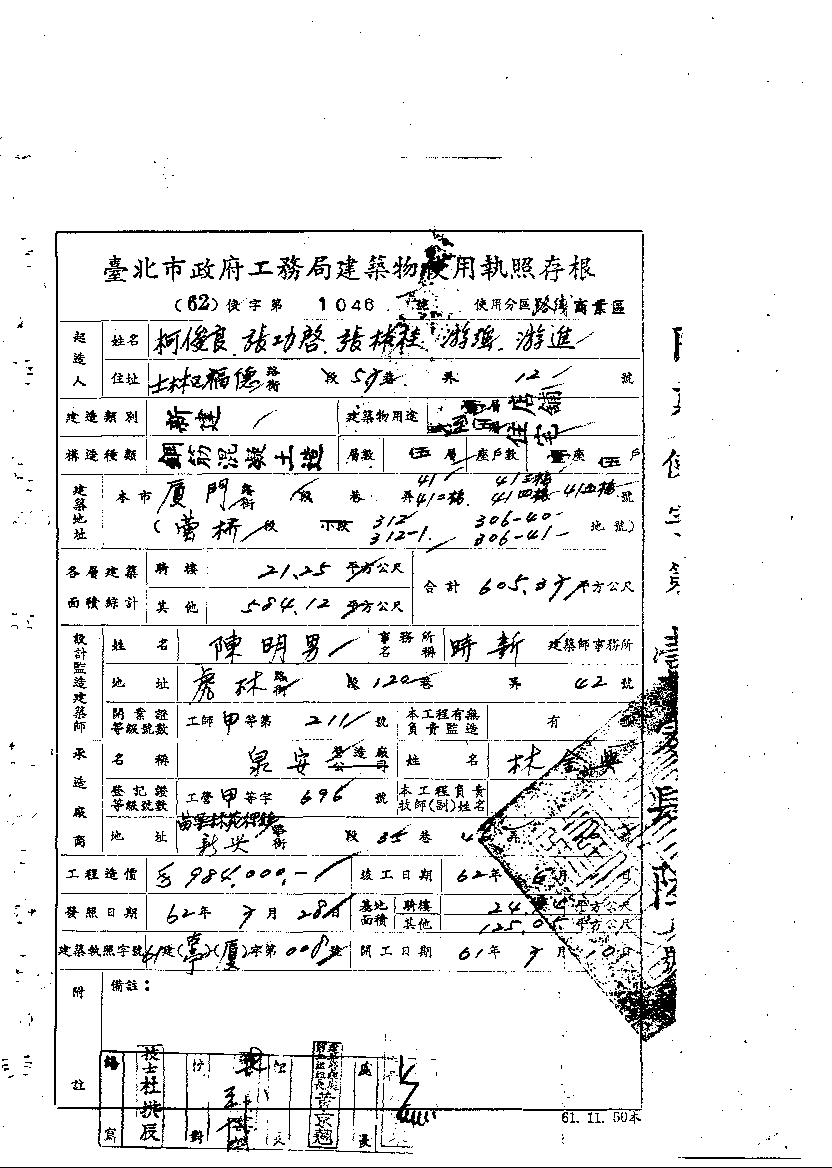 臺北市政府工務局建築物使用執照存根
(62) 使字第 1046 號 使用分區 路線商業區
起造人 姓名 柯俊良.張功啓.張林桂.游強.游進
住址 士林福德 路街 段 57 巷 弄 12 號
建造類別 新建 建築物用途 店舖 住宅
構造種類 鋼筋混凝土造 層數 伍層 座戶數 壹座 伍戶
建築地址 本市 廈門 路街 段 巷 弄 41 41二樓 41三樓 41四樓 41五樓 號
( 段 小段 312 312-1 306-40 306-41 地號)
各層建築面積綜計 騎樓 21.25 平方公尺 合計 605.37 平方公尺
其他 584.12 平方公尺
設計監造建築師 姓名 陳明男 事務所名稱 時新 建築師事務所
地址 虎林 路街 段 120 巷 弄 42 號
開業證等級號數 工師甲等第 211 號 本工程有無負責監造 有
承造廠商 名稱 泉安 營造廠公司 姓名 林金
登記證等級號數 工營甲等字 696 號 本工程負責技師(副)姓名
地址 新興 路街 段 85 巷
工程造價 984,000.- 竣工日期 62年 6月 日
發照日期 62年 7月 28日 基地面積 騎樓 24. 平方公尺
其他 125.05 平方公尺
建築執照字號 61建( )(廈)字第 008 號 開工日期 61年 7月 10日
附註 備註：
繕寫 技士杜 辰 校對 黃京 處長
61.11.50本